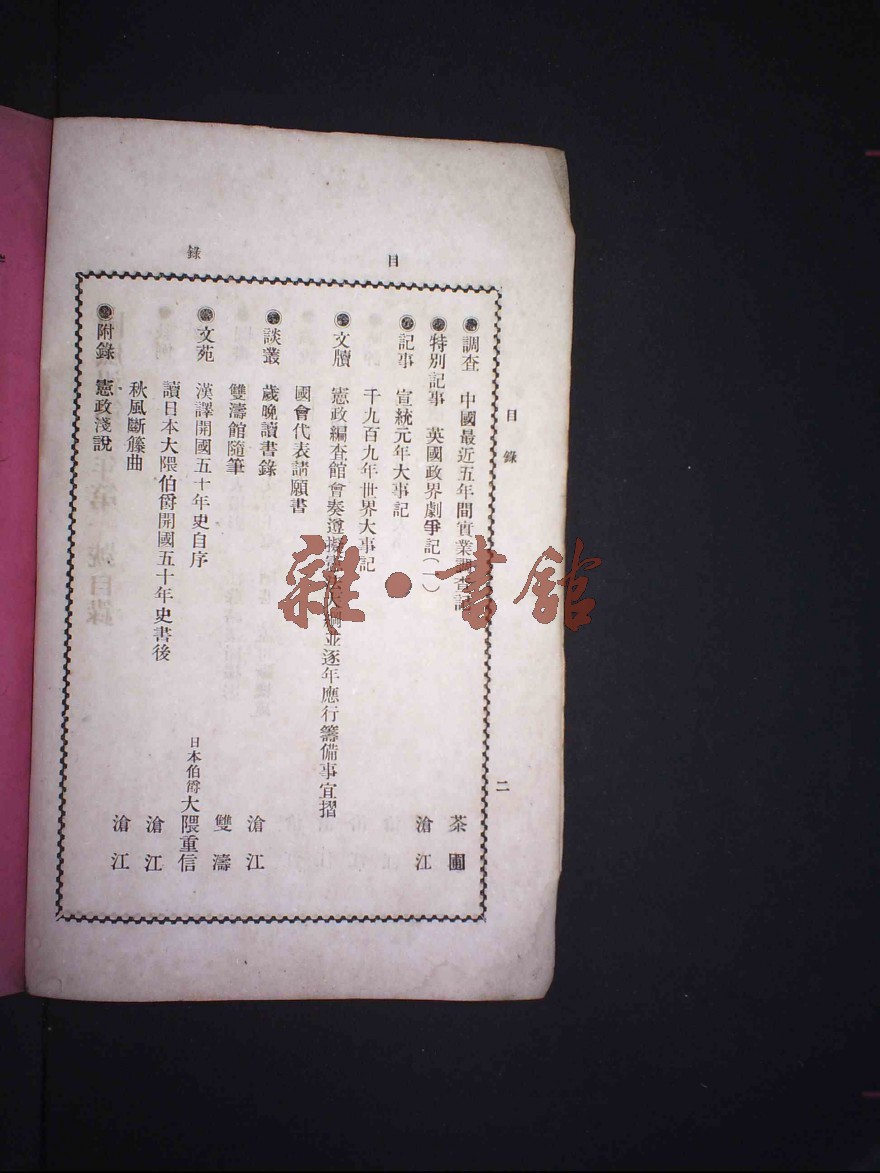 目錄
二
目　錄
●調查　中國最近五年間實業調查記　茶圃
●特別記事　英國政界劇爭記(一)　滄江
●記事　宣統元年大事記
千九百九年世界大事記
●文牘　憲政編查館會奏遵擬憲法大綱並逐年應行籌備事宜摺
國會代表請願書
●談叢　歲晚讀書錄　滄江
雙濤館隨筆　雙濤
●文苑　漢譯開國五十年史自序　日本伯爵大隈重信
讀日本大隈伯爵開國五十年史書後　滄江
秋風斷籐曲　滄江
●附錄　憲政淺說
雜·書館